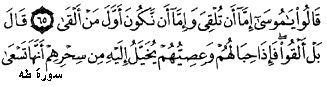 قَالُوا۟ يَـٰمُوسَىٰٓ إِمَّآ أَن تُلْقِىَ وَإِمَّآ أَن نَّكُونَ أَوَّلَ مَنْ أَلْقَىٰ ٦٥ قَالَ
بَلْ أَلْقُوا۟ فَإِذَا حِبَالُهُمْ وَعِصِيُّهُمْ يُخَيَّلُ إِلَيْهِ مِن سِحْرِهِمْ أَنَّهَا تَسْعَىٰ
سورة طه